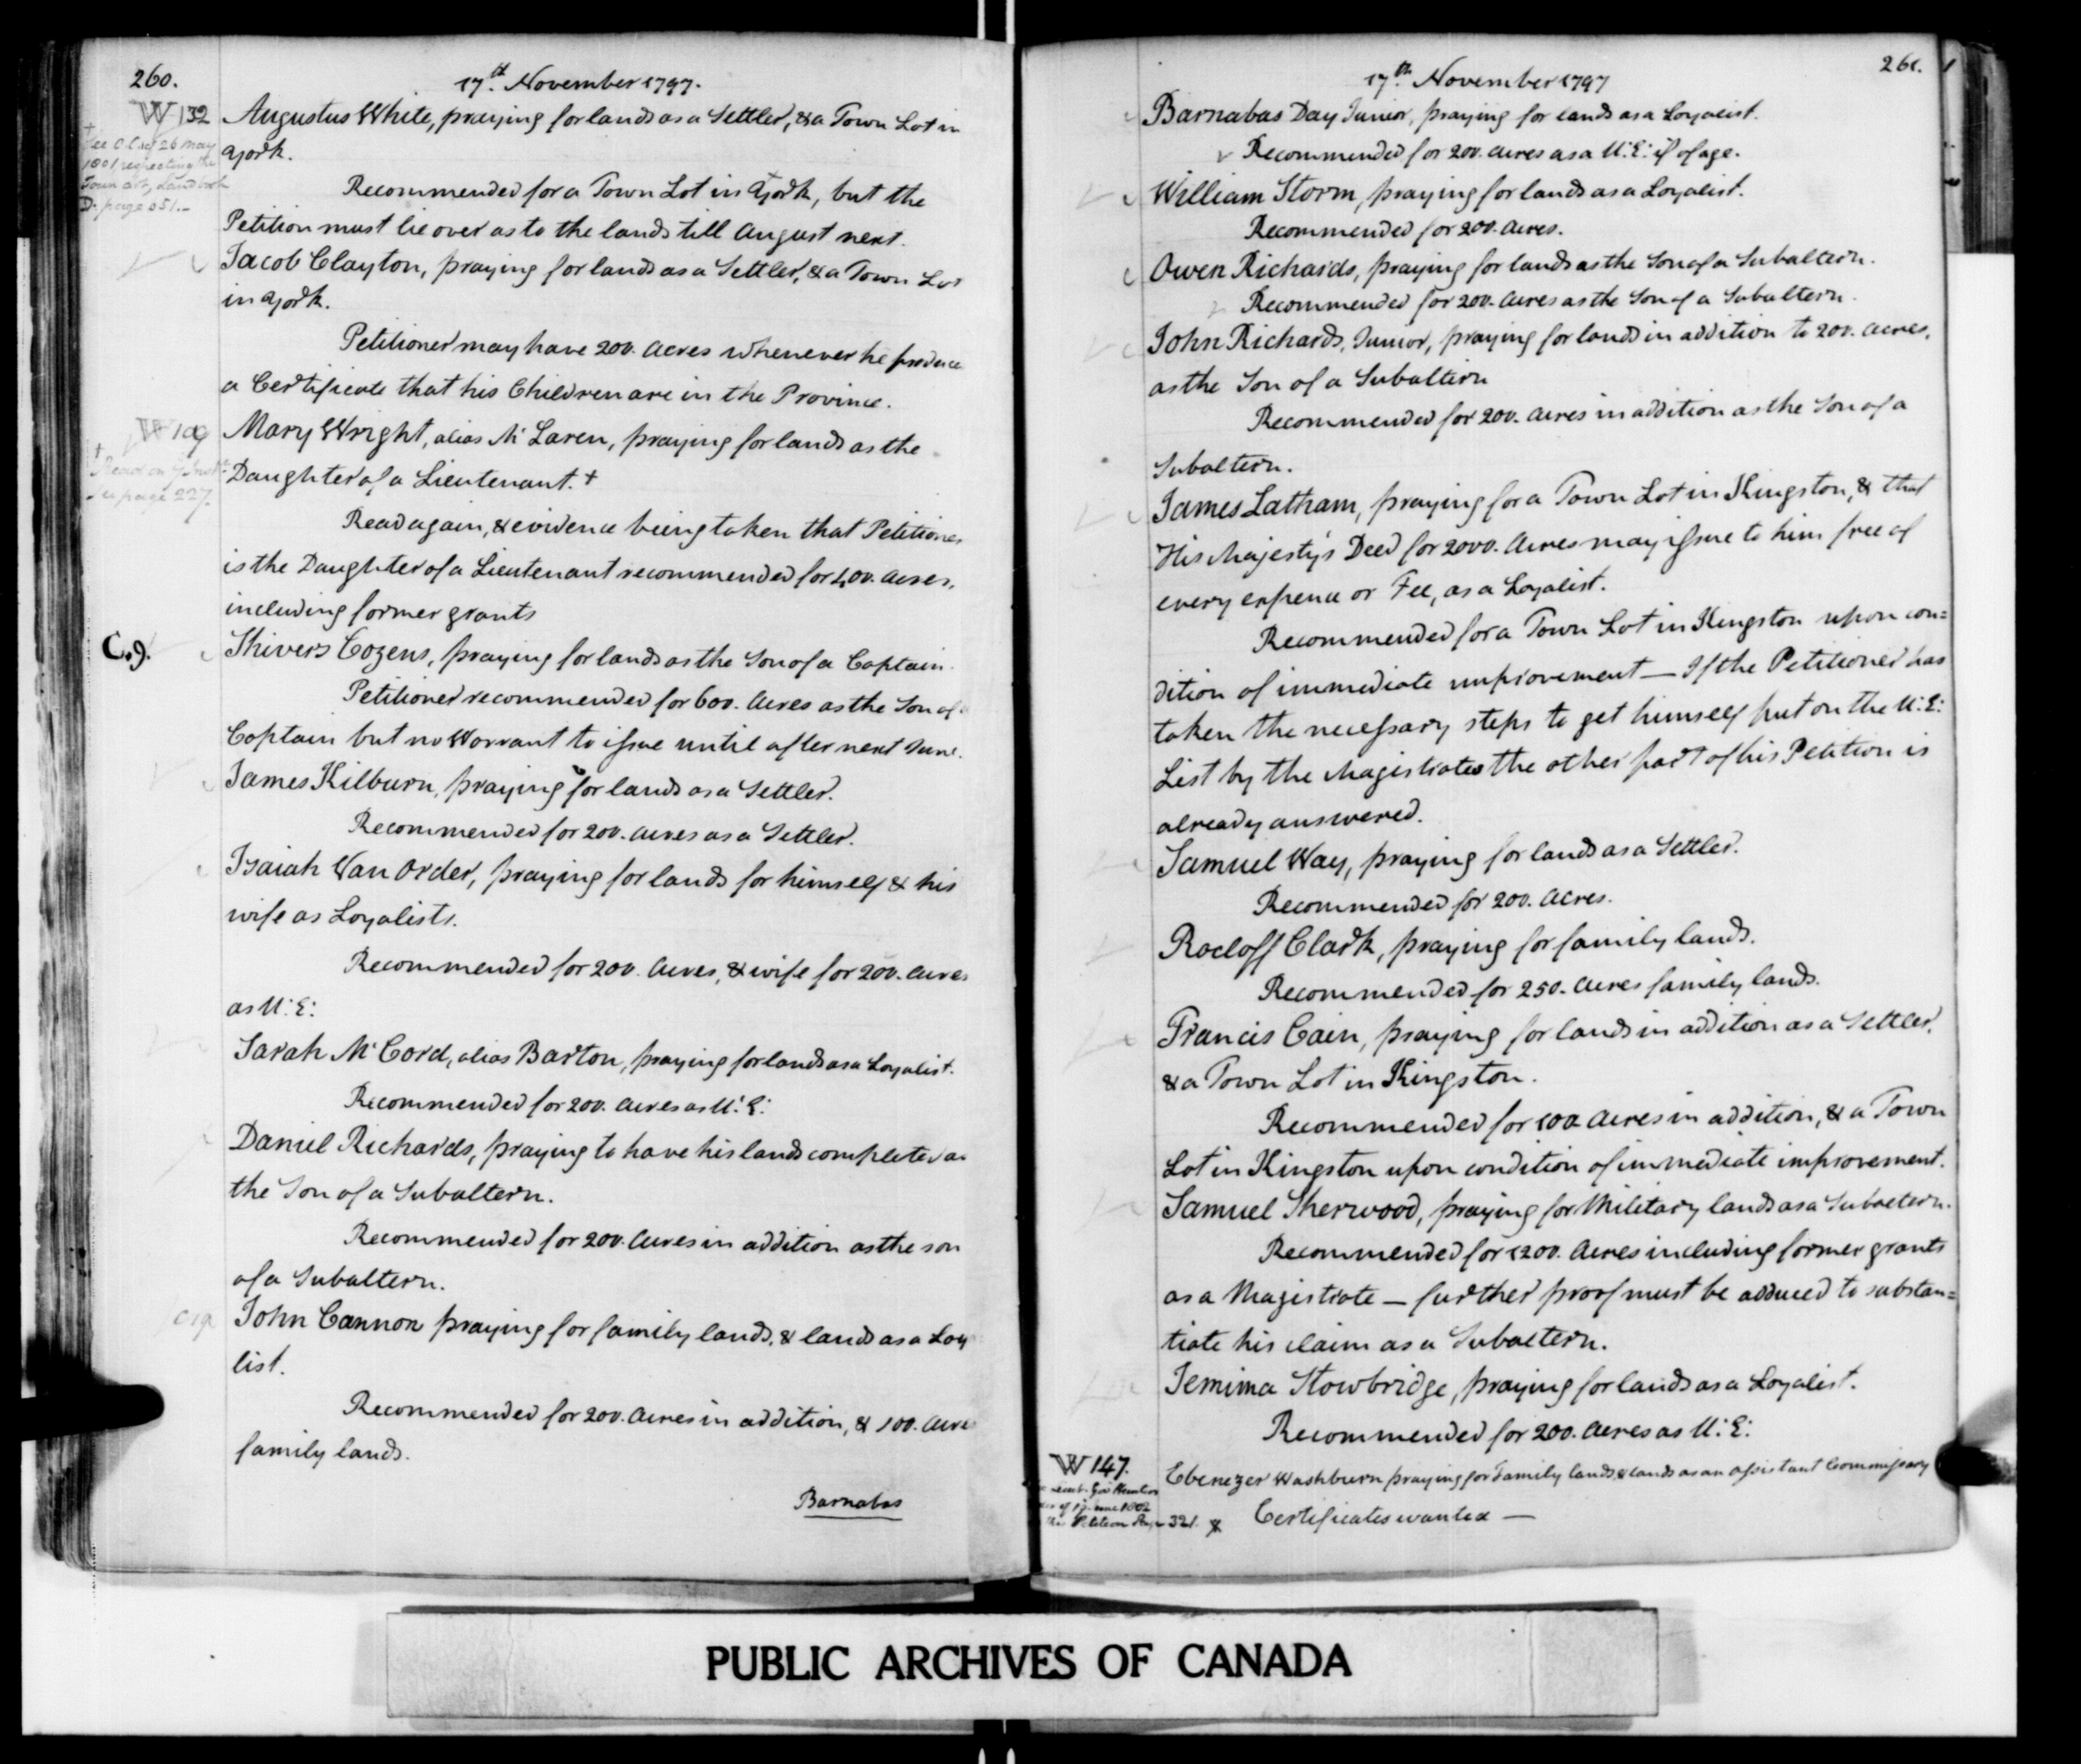 260.
17th. November 1797.
W 132
See O.C. of 26 May
1801 respecting the
Town Lot, Land book
D. page 651.-
Augustus White, praying for lands as a Settler, & a Town Lot in
York.
Recommended for a Town Lot in York, but the
Petition must lie over as to the lands till August next.
Jacob Clayton, praying for lands as a Settler, & a Town Lot
in York.
Petitioner may have 200. Acres whenever he produce
a Certificate that his Children are in the Province.
W 109
+
Read on
See page 227.
Mary Wright, alias Mc Laren, praying for lands as the
Daughter of a Lieutenant. +
Read again, & evidence being taken that Petitioner
is the Daughter of a Lieutenant recommended for 400. Acres,
including former grants
C.9.
Shivers Cozens, praying for lands as the Son of a Captain.
Petitioner recommended for 600. Acres as the Son of a
Captain but no Warrant to issue until after next June.
James Kilburn, praying for lands as a Settler.
Recommended for 200. Acres as a Settler.
Isaiah Van Order, praying for lands for himself & his
wife as Loyalists.
Recommended for 200. Acres, & wife for 200. Acres
as U: E:
Sarah Mc Cord, alias Barton, praying for lands as a Loyalist.
Recommended for 200. Acres as U: E:
Daniel Richards, praying to have his lands completed as
the Son of a Subaltern.
Recommended for 200. Acres in addition as the son
of a Subaltern.
John Cannon praying for family lands, & lands as a Loy
list.
Recommended for 200. Acres in addition, & 100. Acres
family lands.
Barnabas
261.
17th. November 1797
Barnabas Day Junior, praying for lands as a Loyalist.
Recommended for 200. Acres as a U: E: if of age.
William Storm, praying for lands as a Loyalist.
Recommended for 200. Acres.
Owen Richards, praying for lands as the Son of a Subaltern.
Recommended for 200. Acres as the Son of a Subaltern.
John Richards, Junior, praying for lands in addition to 200. Acres,
as the Son of a Subaltern
Recommended for 200. Acres in addition as the Son of a
Subaltern.
James Latham, praying for a Town Lot in Kingston, & that
His Majesty's Deed for 2000. Acres may issue to him free of
every expence or Fee, as a Loyalist.
Recommended for a Town Lot in Kingston upon con=
dition of immediate improvement — If the Petitioner has
taken the necessary steps to get himself put on the U: E:
List by the Magistrates the other part of his Petition is
already answered.
Samuel Way, praying for lands as a Settler.
Recommended for 200. Acres.
Roeloff Clark, praying for family lands.
Recommended for 250. Acres family lands.
Francis Cain, praying for lands in addition as a Settler,
& a Town Lot in Kingston.
Recommended for 100 Acres in addition, & a Town
Lot in Kingston upon condition of immediate improvement.
Samuel Sherwood, praying for Military lands as a Subaltern.
Recommended for 1200. Acres including former grants
as a Magistrate — further proof must be adduced to substan=
tiate his claim as a Subaltern.
Jemima Stowbridge, praying for lands as a Loyalist.
Recommended for 200. Acres as U: E:
W 147.
Lieut. Gov. Hunter
of 1802
this Petition Page 321.
Ebenezer Washburn praying for Family lands, & lands as an assistant Commissary
Certificates wanted —
PUBLIC ARCHIVES OF CANADA